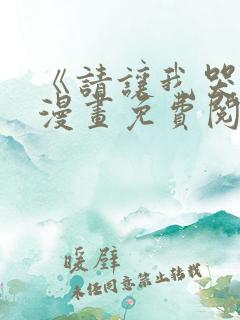 《請讓我哭
漫畫免費閱
暖壁
未經同意禁止轉載